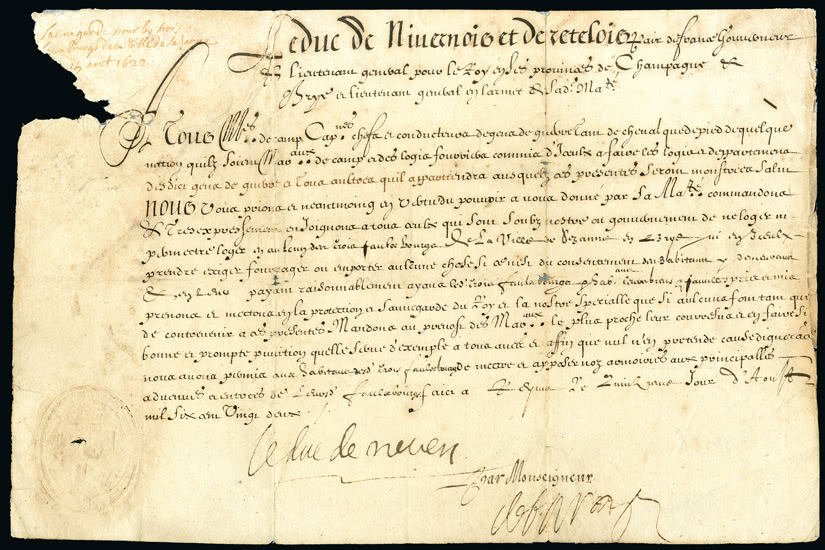 Sauvegarde pour les trois
faubourgs de la ville de Sezanne
15 aoust 1622
Le duc de Nivernois et de retelois Pair de france Gouverneur
& lieutenant general pour le Roy en ses provinces de Champagne &
Brye et lieutenant general en l'armee de sad. Ma.te
A Tous M.es de camp Cap.nes chefs et conducteurs de gens de guerre tant de cheval que de pied de quelque
nation quilz soient Ma.aux de camp et des logis fourriers commis et a faire les logis et departemens
desdictz gens de guerre et tous aultres quil appartiendra ausquelz ces presentes seront monstrees Salut
NOUS Vous prions et neantmoings en vertu du pouvoir a nous donne par sa Ma.te commandons
& Tres expressement enjoignons a tous ceulx qui sont soubz nostre gouvernement de ne loger ni
permettre loger en aulcun des trois faulxbourgs de la ville de Sezanne en Brye ni en iceulx
prendre exiger fourrager ou emporter aulcune chose si ce n'est du consentement des habitans
& en payant raisonnablement ayans les trois faulxbourgs
prenons et mettons en la protection et sauvegarde du Roy et la nostre specialle que si aulcuns font tant que
de contrevenir a ces presentes Mandons au prevost des Ma.aux le plus proche leur courre sus et en faire si
bonne et prompte punition quelle serve d'exemple a tous aultres et affin que nul n'en pretende cause dignorance
nous avons permis aux habitans desd. trois faulxbourgs de mettre et apposer noz armoiries aux principalles
advenues et entrees de leursd. faulxbourgs faict a le quinziesme jour d'Aoust
mil six cens vingt deux
le duc de nevers
Par Monseigneur